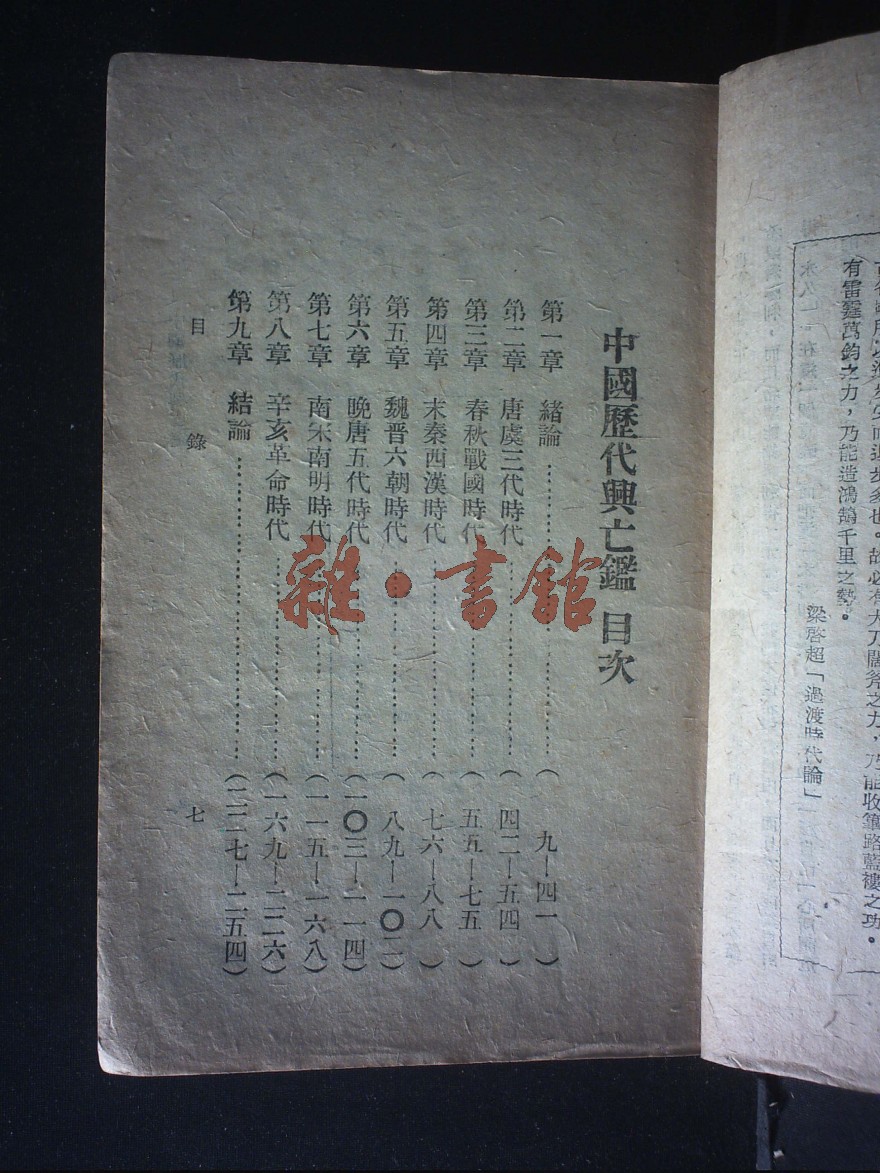 故必有大刀闊斧之力，乃能收篳路藍褸之功。
有雷霆萬鈞之力，乃能造鴻鵠千里之勢。
梁啓超「過渡時代論」
中國歷代興亡鑑 目次
第一章 緒論……………………（ 九—四一 ）
第二章 唐虞三代時代……………………（ 四二—五四 ）
第三章 春秋戰國時代……………………（ 五五—七五 ）
第四章 末秦西漢時代……………………（ 七六—八八 ）
第五章 魏晋六朝時代……………………（ 八九—一〇二）
第六章 晚唐五代時代……………………（一〇三—一一四）
第七章 南宋南明時代……………………（一一五—一六八）
第八章 辛亥革命時代……………………（一六九—二二六）
第九章 結論……………………（二二七—二五四）
目 錄 七
雜·書館